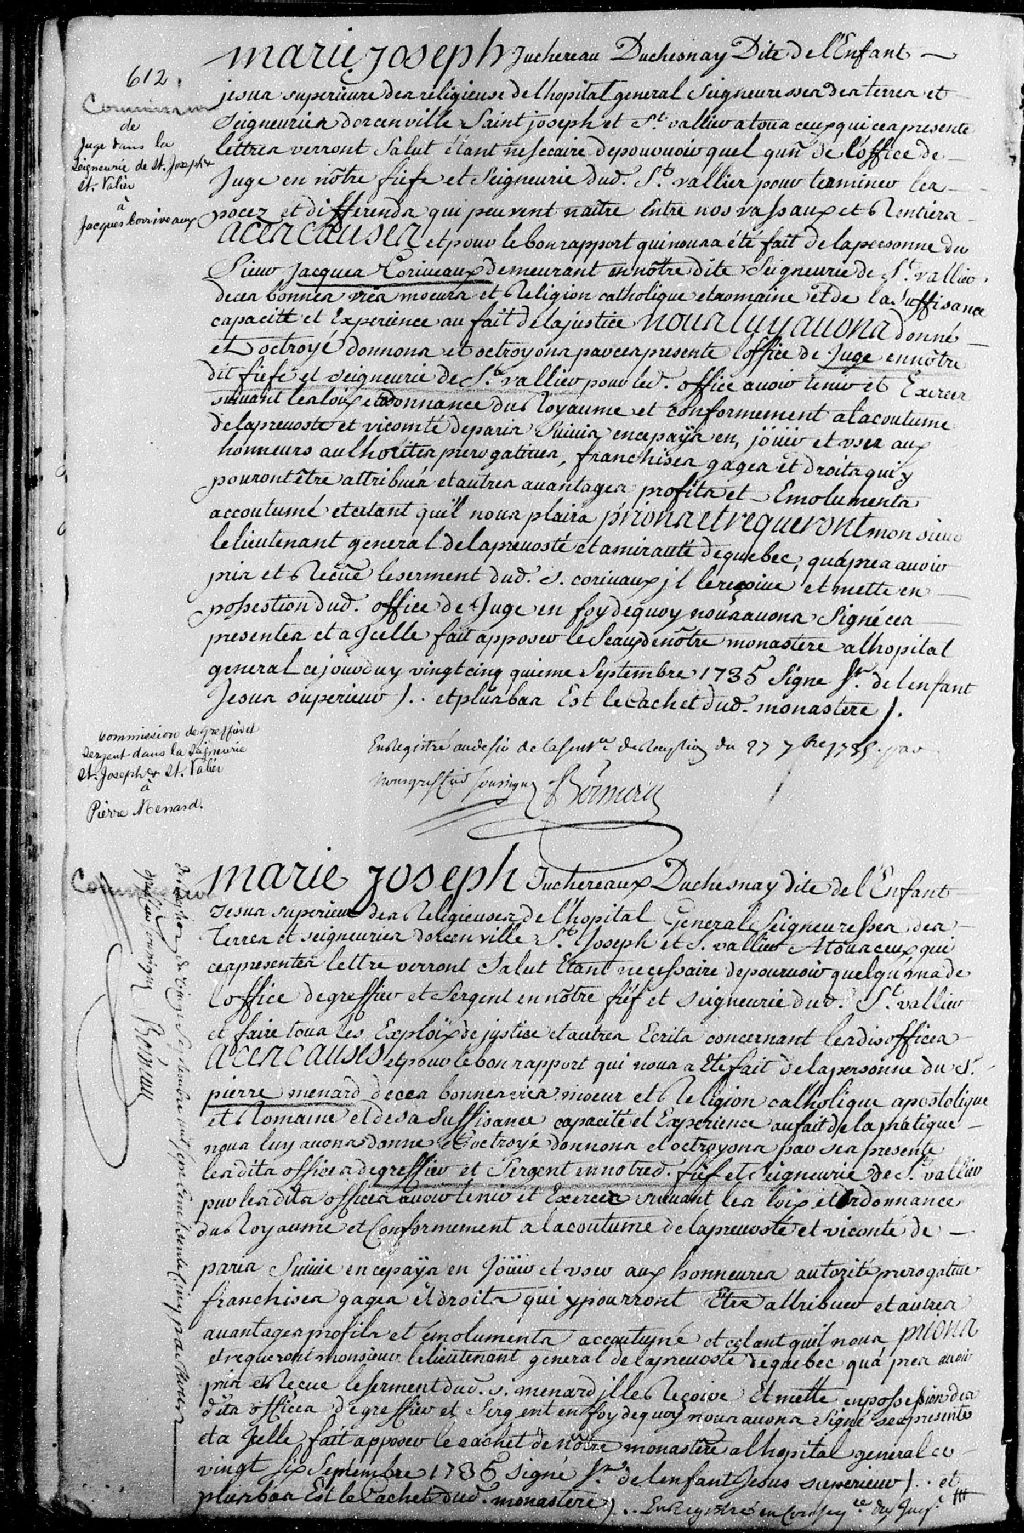 612.
Commission
de
Juge dans la
Seigneurie de St. Joseph &
St. Valier
à
Jacques Corriveaux
marie joseph Juchereau Duchesnay Dite de l'Enfant
jesus superieure des religieuse de lhopital general Seigneuresses des terres et
Seigneuries dorcenville Saint joseph et St. vallier a tous ceux qui ces presente
lettres verront Salut étant nessecaire de pouvuoir quel qun de l'office de
Juge en nôtre fiefe et Seigneurie dud. St. vallier pour terminer les
pocez et differends qui peuvent naître Entre nos vassaux et Rentiers
a ces causes et pour le bon rapport qui nous a été fait de la personne du
Sieur Jacques Coriveaux demeurant en nôtre dite Seigneurie de St. vallier
de ces bonnes vies moeurs et Religion catholique et romaine et de la Suffisance
capacité et Experience au fait de la justice nous luy avons donné
et octroyé donnons et octroyons par ces presente l'office de Juge en nôtre
dit fiefe et seigneurie de St. vallier pour led. office avoir tenir et Exercer
suivant les loix et ordonnance du Royaume et conformement a la coutume
de la prevoste et vicomté de paris Suivis en ce païs en, jouir et user aux
honneurs authorites prerogatives, franchises gages et droits qui y
pouront être attribués et autres avantages profits et Emoluments
accoutumé et tant qu'il nous plaira prions et requeront monsieur
le lieutenant general de la prevosté et amirauté de quebec, quápres avoir
pris et Reçüe le serment dud. S. corivaux jl le reçoive et mette en
possestion dud. office de Juge en foy de quoy nous avons Signé ces
presentes et a Jcelle fait apposer le Seau de nôtre monastere a lhopital
general ce jourduy vingt cinq quieme Septembre 1735 Signe Sr. de lenfant
Jesus superieur ). et plus bas Est le Cachet dud. monastere ).
Enregistré au desir de la Sence de Reception du 27 7bre 1735 par
nous greffier soussigné
Commission de Greffier et
Sergent dans la Seigneurie
St. Joseph & St. Valier
à
Pierre Menard.
Commission
marie joseph Juchereaux Duchesnay dite de l'Enfant
Jesus superieur des Religieuses de l'hopital Général Seigneuresses des
Terres et seigneuries dorcenville St. Joseph et S. vallier A tous ceux qui
ces presentes lettre verront Salut Etant necessaire de pouruoir quelqu'un de
l'office de greffier et Sergent en nôtre fiéf et Seigneurie dud. St. vallier
et faire tous les Exploix de justise et autres Ecrits concernant lesdis offices
a ces causes et pour le bon rapport qui nous a Eté fait de la personne du S.
pierre menard de ces bonnes vies moeur et Religion catholique apostolique
et Romaine et de sa Suffisance capacité et Experience au fait de la pratique
nous luy avons donne et octroyé donnons et octroyons par ses presente
lesdits offices de greffier et Sergent en notred. fiéf et Seigneurie de S. vallier
pour lesdits offices avoir tenir et Exercer suivant les loix et ordonnances
du Royaume et Conformement a la coutume de la prevoste et viconte de
paris Suivie en ce païs en Jouir et user aux honneures autorité prerogative
franchises gages et droits qui y pourront Etre attribuer et autres
avantages profits et émoluments accoutumé et tant qu'il nous plaira prions
et requerons monsieur le lieutenant general de la prevosté de quebec quá pres avoir
pris et Recue le serment dud. S. menard jl le Reçoive Et mette en possession des
dits offices de greffier et Sergent en foy de quoy nous avons Signé ses presente
et a Jcelle fait apposer le cachet de nôtre monastere a lhopital general ce
vingt six Septembre 1735 Signé Sr. de lenfant Jesus superieur ). et
plus bas Est le Cachet dud. monastere ).